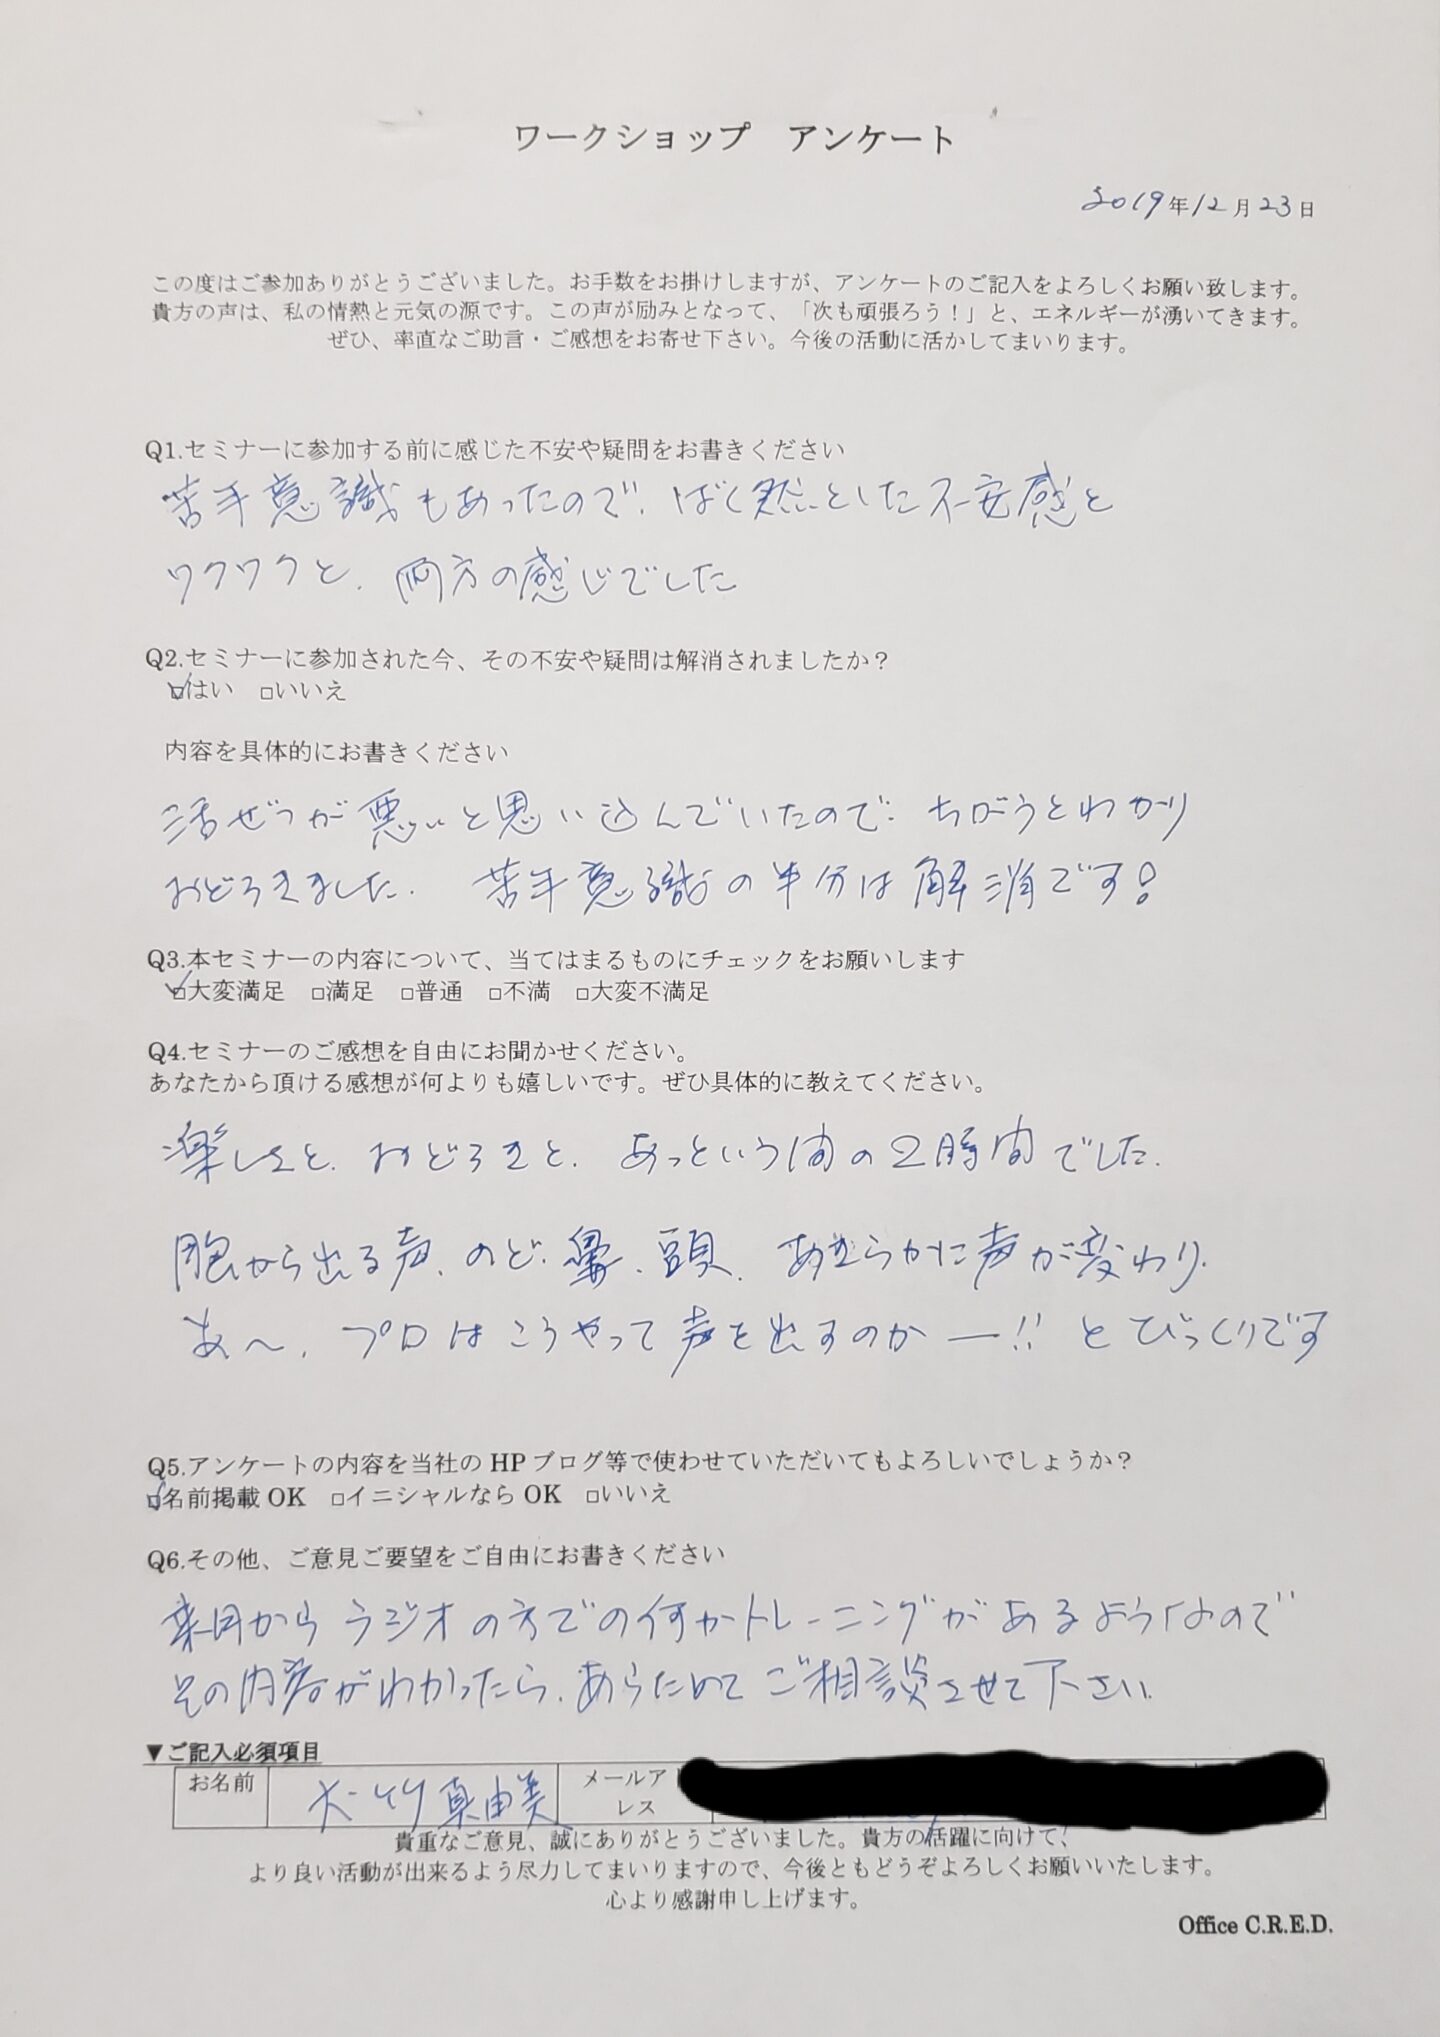 ワークショップ　アンケート
2019年12月23日
この度はご参加ありがとうございました。お手数をお掛けしますが、アンケートのご記入をよろしくお願い致します。
貴方の声は、私の情熱と元気の源です。この声が励みとなって、「次も頑張ろう！」と、エネルギーが湧いてきます。
ぜひ、率直なご助言・ご感想をお寄せ下さい。今後の活動に活かしてまいります。
Q1.セミナーに参加する前に感じた不安や疑問をお書きください
苦手意識もあったので、ばく然とした不安感と
ワクワクと、両方の感じでした
Q2.セミナーに参加された今、その不安や疑問は解消されましたか？
☑はい　□いいえ
内容を具体的にお書きください
活ぜつが悪いと思い込んでいたので、ちがうとわかり
おどろきました。苦手意識の半分は解消です！
Q3.本セミナーの内容について、当てはまるものにチェックをお願いします
☑大変満足　□満足　□普通　□不満　□大変不満足
Q4.セミナーのご感想を自由にお聞かせください。
あなたから頂ける感想が何よりも嬉しいです。ぜひ具体的に教えてください。
楽しさと、おどろきと、あっという間の2時間でした。
胸から出る声、のど、鼻、頭、あきらかに声が変わり、
あ〜、プロはこうやって声を出すのかー!! とびっくりです
Q5.アンケートの内容を当社の HP ブログ等で使わせていただいてもよろしいでしょうか？
☑名前掲載 OK　□イニシャルなら OK　□いいえ
Q6.その他、ご意見ご要望をご自由にお書きください
来月からラジオの方での何かトレーニングがあるようなので
その内容がわかったら、あらためてご相談させて下さい。
▼ご記入必須項目
お名前　大竹真由美　メールアド
レス
貴重なご意見、誠にありがとうございました。貴方の活躍に向けて、
より良い活動が出来るよう尽力してまいりますので、今後ともどうぞよろしくお願いいたします。
心より感謝申し上げます。
Office C.R.E.D.